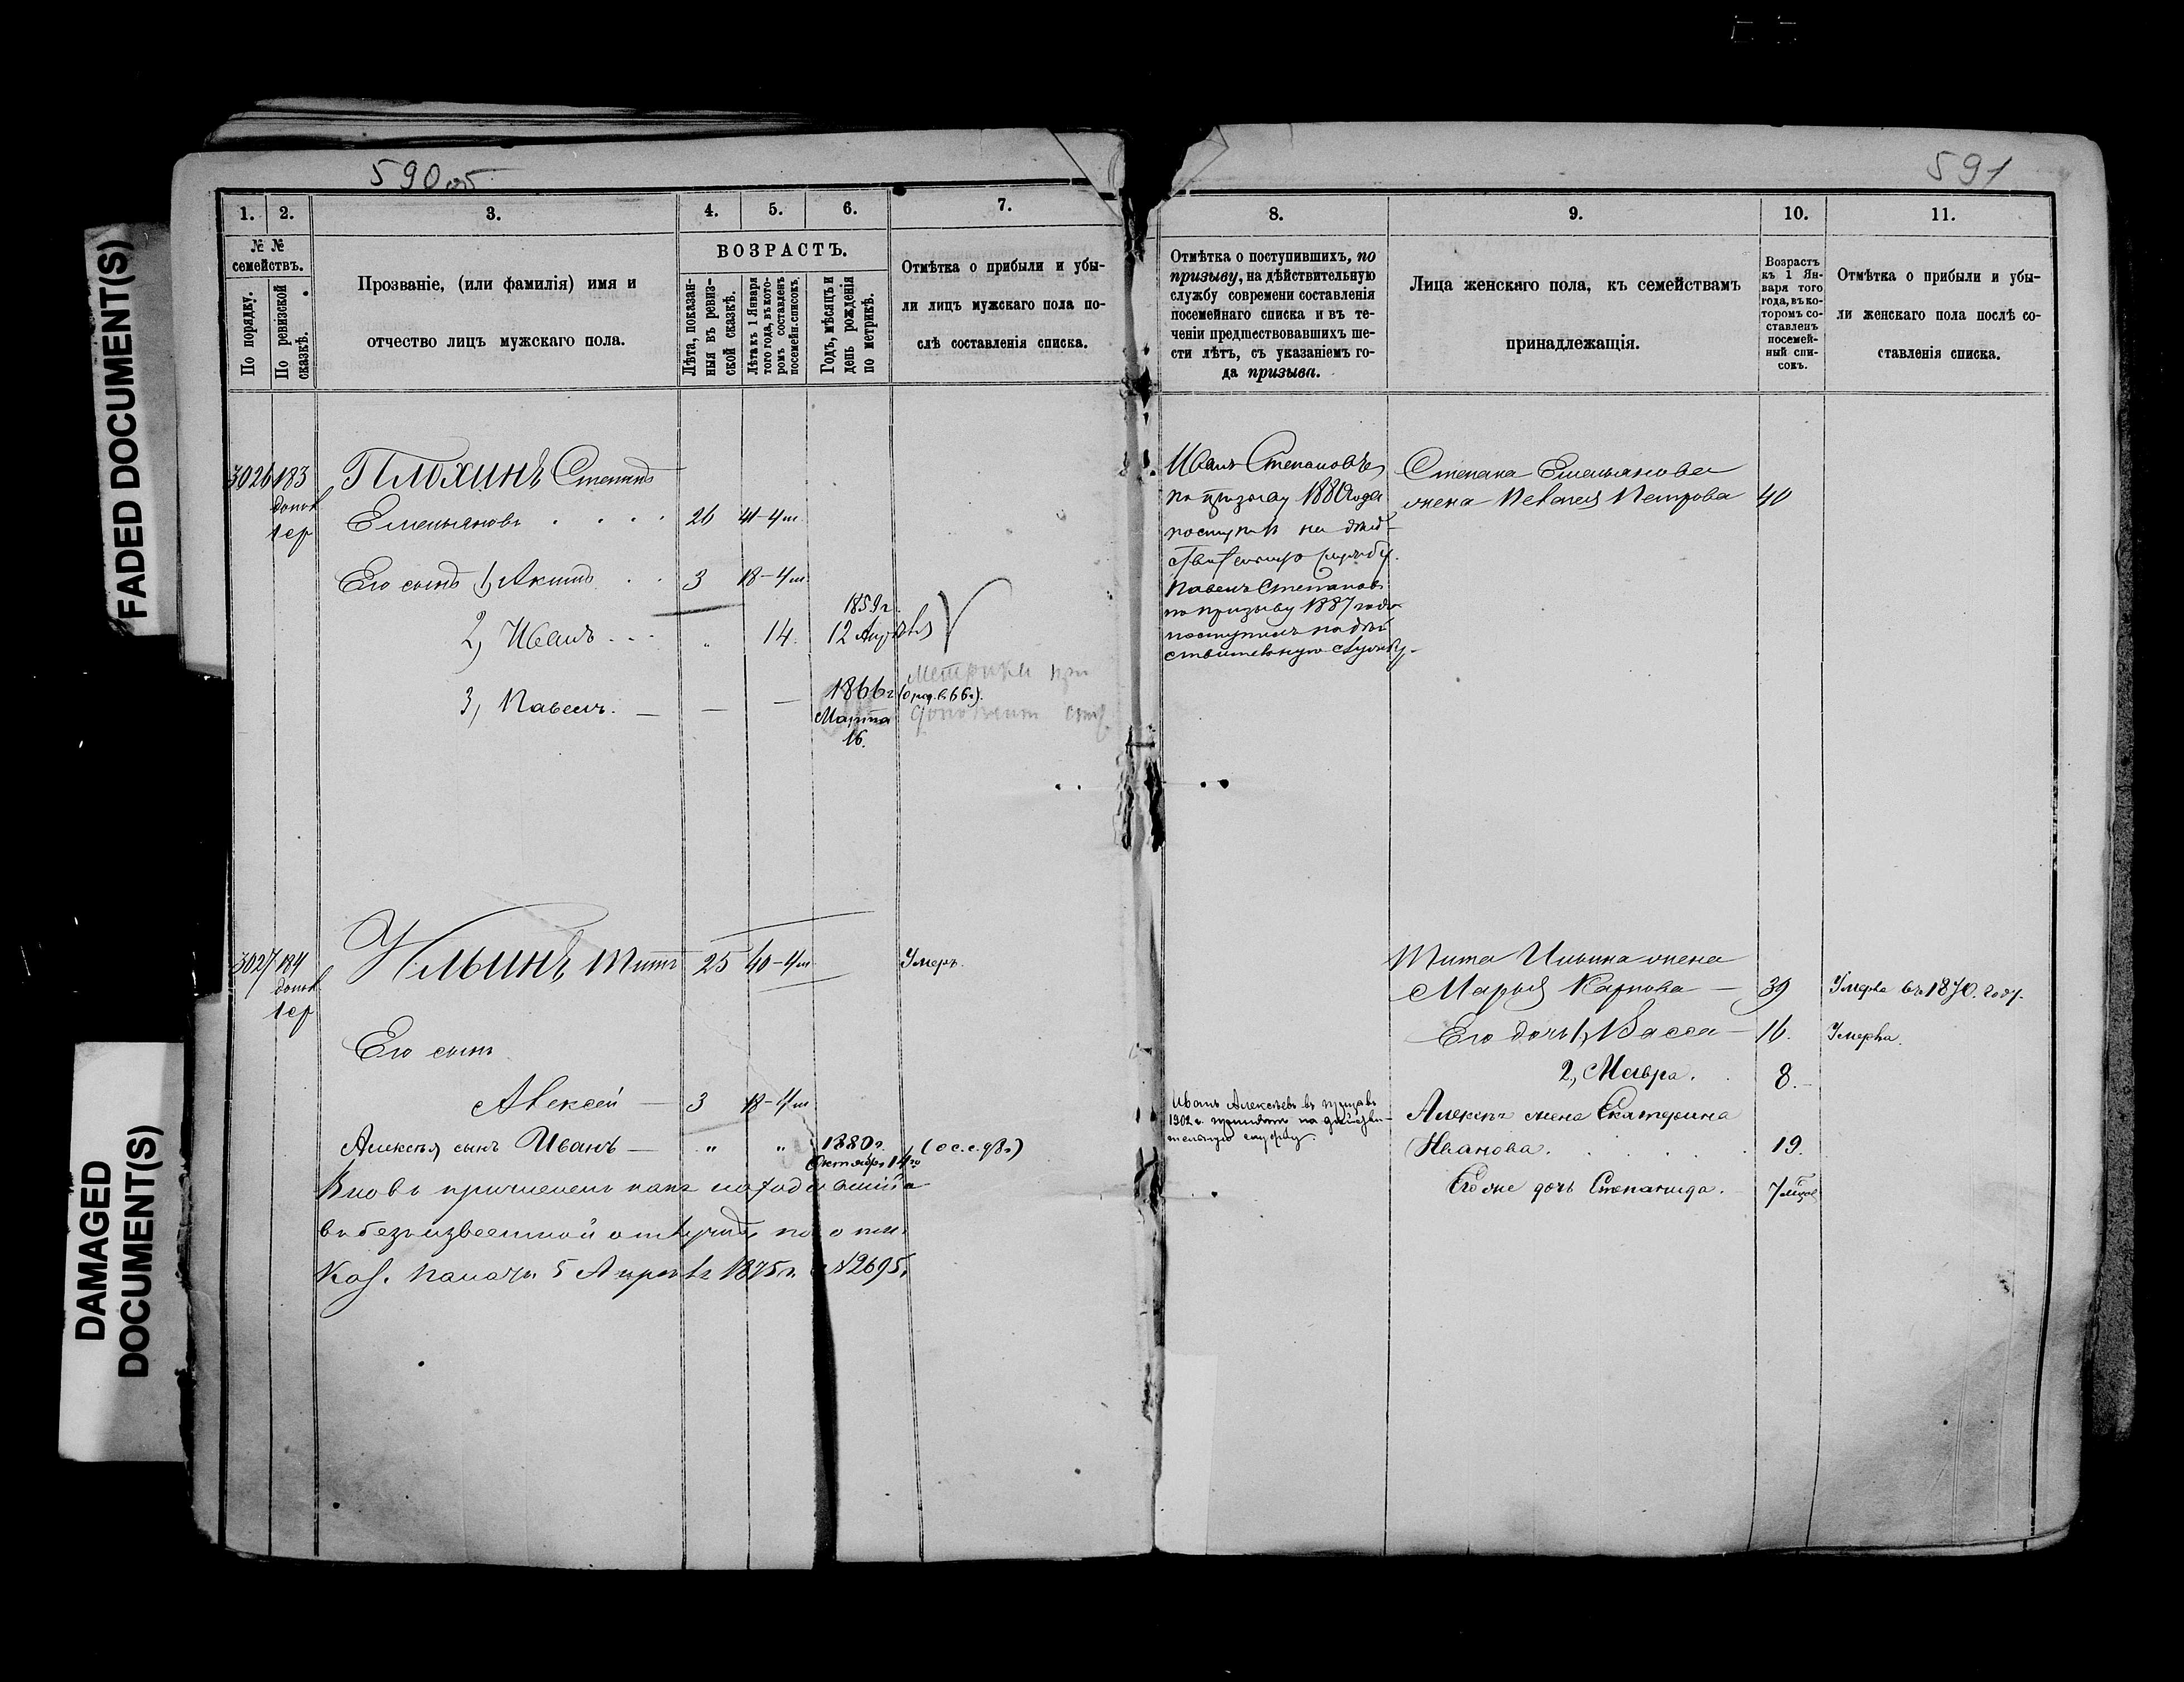 FADED DOCUMENT(S)
DAMAGED
DOCUMENT(S)
590 об
1.
2.
3.
4.
5.
6.
7.
№ №
семействъ.
По порядку.
По ревизской
сказкѣ.
Прозваніе, (или фамилія) имя и
отчество лицъ мужскаго пола.
ВОЗРАСТЪ.
Лѣта, показан-
ныя въ ревиз-
ской сказкѣ.
Лѣта къ 1 Января
того года, въ кото-
ромъ составленъ
посемейн. списокъ.
Годъ, мѣсяцъ и
день рожденія
по метрикѣ.
Отмѣтка о прибыли и убы-
ли лицъ мужскаго пола по-
слѣ составленія списка.
3026 183 Плохинъ Степанъ
допол
1 ср
Емельяновъ . . . . 26 41-4 м.
Его сынъ 1, Акимъ . . 3 18-4 м
2, Иванъ - - - " 14. 1859 г.
12
3, Павелъ. — — — 1866 г. (о род. в. 66 г.).
Марта
16.
Метрики при
3027 184 Ильинъ Титъ 25 40-4 м Умеръ.
допол
1 ср
Его сынъ
Алексей — 3 18-4 м
Алексѣя сынъ Иванъ — " " 1880 г.
Октября 14 го
Вновь причисленъ какъ находившійся
въ безъизвестной отлучкѣ по
Каз. Палаты 5 Апрѣля 1875 г. № 2695.
591
8.
9.
10.
11.
Отмѣтка о поступившихъ, по
призыву, на дѣйствительную
службу современи составленія
посемейнаго списка и въ те-
ченіи предшествовавшихъ ше-
сти лѣтъ, съ указаніемъ го-
да призыва.
Лица женскаго пола, къ семействамъ
принадлежащія.
Возрастъ
къ 1 Ян-
варя того
года, въ ко-
торомъ со-
ставленъ
посемей-
ный спи-
сокъ.
Отмѣтка о прибыли и убы-
ли женскаго пола послѣ со-
ставленія списка.
Иванъ Степановъ
по призыву 1880 года
поступил на дѣй-
ствительную службу.
Павелъ Степановъ
по призыву 1887 года
поступилъ на дѣй
ствительную службу.
Степана Емельянова
жена Пелагея Петрова 40
Тита Ильина жена
Марья Карпова — 39 Умерла въ 1870. году.
Его дочь 1, Васса — 16. Умерла.
2, Мавра. 8.-
Иванъ Алексѣевъ въ призывъ
1902 г. принятъ на дѣйстви-
тельную службу.
Алексѣя жена Екатерина
Иванова. . . . . . 19.
Его же дочь Степанида. 7 мѣсяц